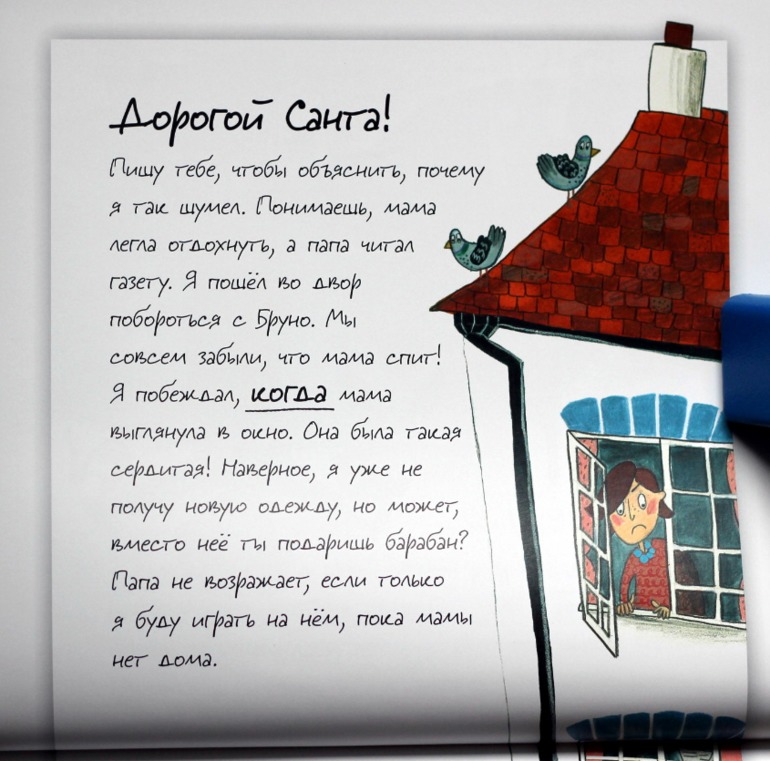 Дорогой Санта!
Пишу тебе, чтобы объяснить, почему
я так шумел. Понимаешь, мама
легла отдохнуть, а папа читал
газету. Я пошёл во двор
побороться с Бруно. Мы
совсем забыли, что мама спит!
Я побеждал, когда мама
выглянула в окно. Она была такая
сердитая! Наверное, я уже не
получу новую одежду, но может,
вместо неё ты подаришь барабан?
Папа не возражает, если только
я буду играть на нём, пока мамы
нет дома.